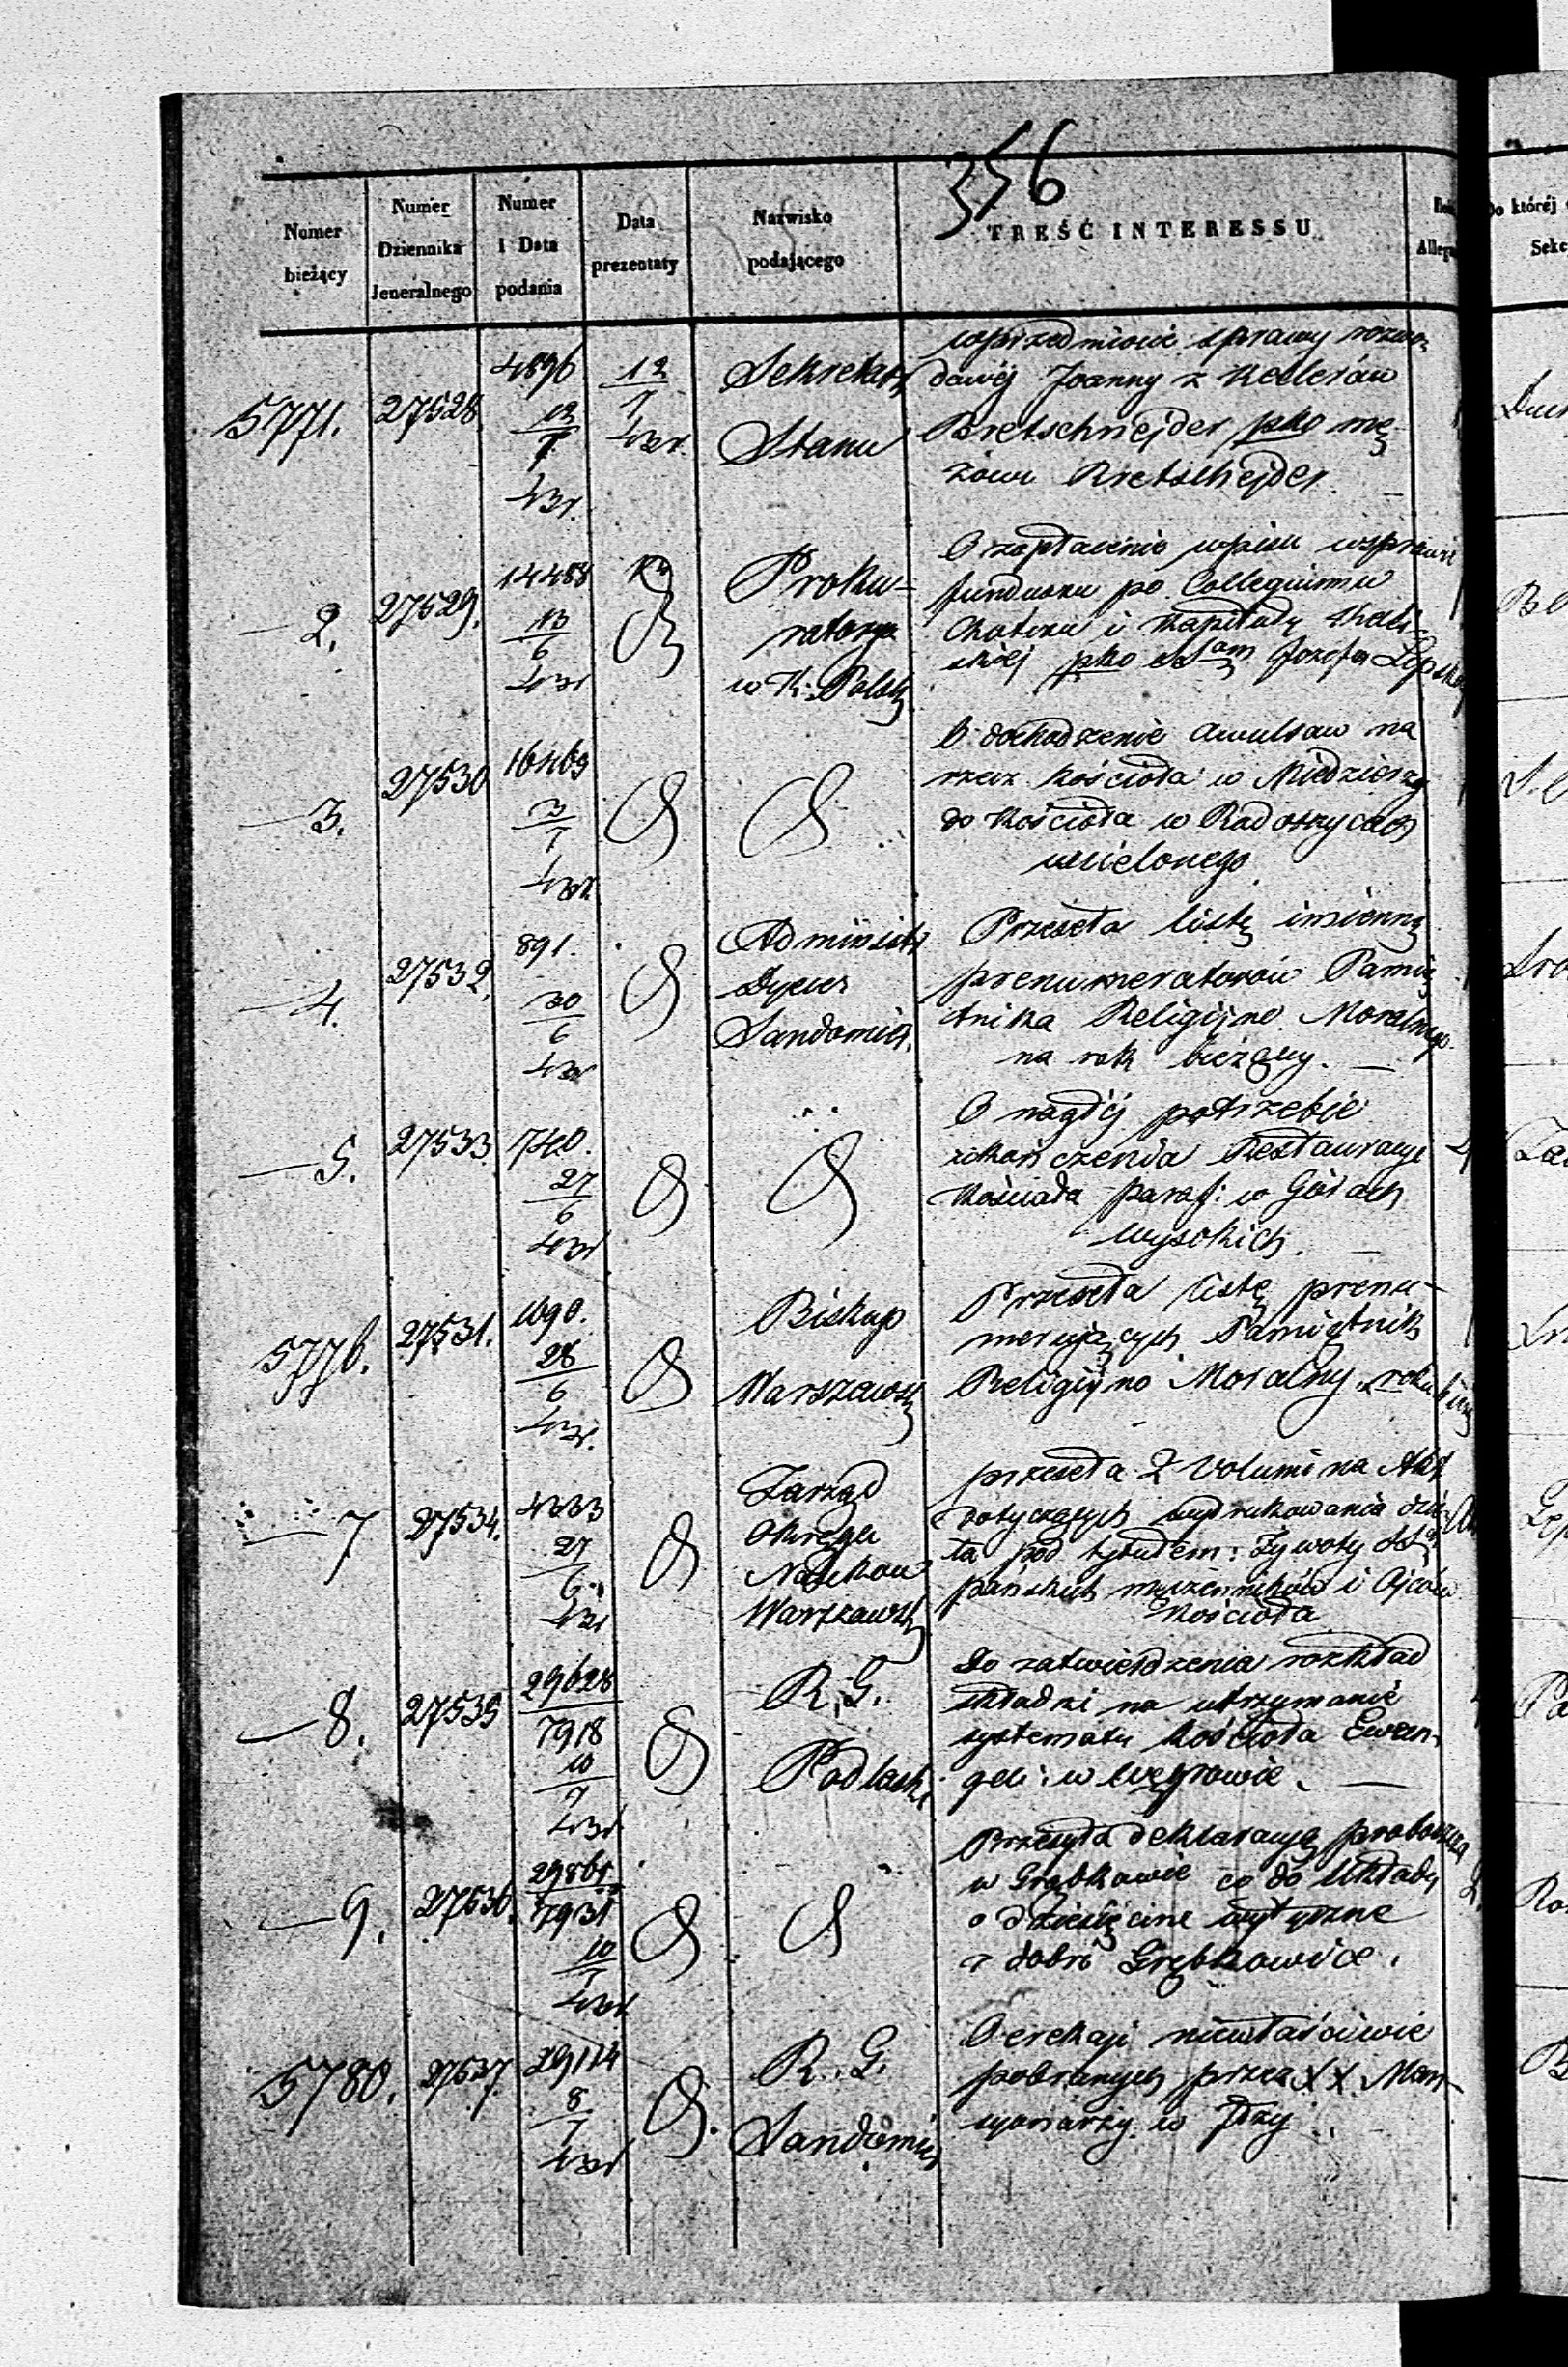 356
Numer bieżący
Numer Dziennika Jeneralnego
Numer i Data podania
Data prezentaty
Nazwisko podającego
TREŚĆ INTERESSU
Do której
Sekc
5771. 27528. 4896 12/7 43r. 12/7 43r. Sekretarz Stanu
w przedmiocie sprawy rozwo-
dowéj Joanny z Kellerów
Bretschnejder pko mę-
żowi Bretschejder.
— 2. 27529. 14488 13/6 43r Prokuratorya w K. Polsk
O zapłacenie wpisu w sprawie
funduszu po Collegiumu
i Kapituły Kali-
skiéj pko Józefa Lipsk
— 3. 27530 16469 3/7 43r.
O dochodzenie awulsów na
rzecz kościoła w Miedzierzy
do kościoła w Radoszycach
wcielonego.
— 4. 27532. 891. 30/6 43r Administ Dyecez Sandomir.
Przeseła listę imienną
prenumeratorów Pamię
tnika Religijno Moralnego
na rok bieżący. —
— 5. 27533. 740. 27/6 43r
O nagłéj potrzebie
zakończenia Restauracyi
kościoła paraf: w Górach
wysokich. —
5776. 27531. 1090. 28/6 43r. Biskup Warszawsk
Przeseła listę prenu-
merujących Pamiętnik
Religijno Moralny z roku
— 7 27534. 4333 27/6 43r Zarząd Okręgu Naukow Warszawsk
przeseła 2 Volumina Akt
dotyczących wydrukowania dzie-
ła pod tytułem: Żywoty SS
pańskich męczenników i Ojców
Kościoła
— 8. 27535 29628/7918 10/7 43r R. G. Podlaski
Do zatwierdzenia rozkład
składki na utrzymanie
systematu kościoła Ewan-
geli: w Węgrowie. —
— 9. 27536. 7931 10/7 43r
Przesyła deklaracyę proboszcza
w Grębkowie co do układu
o dziesięcinę wytyczną
z dóbr Grębkowice.
5780. 27537. 29114 8/7 43r R. G. Sandomir
niewłaściwie
pobranych przez XX. Man-
syonarzy w